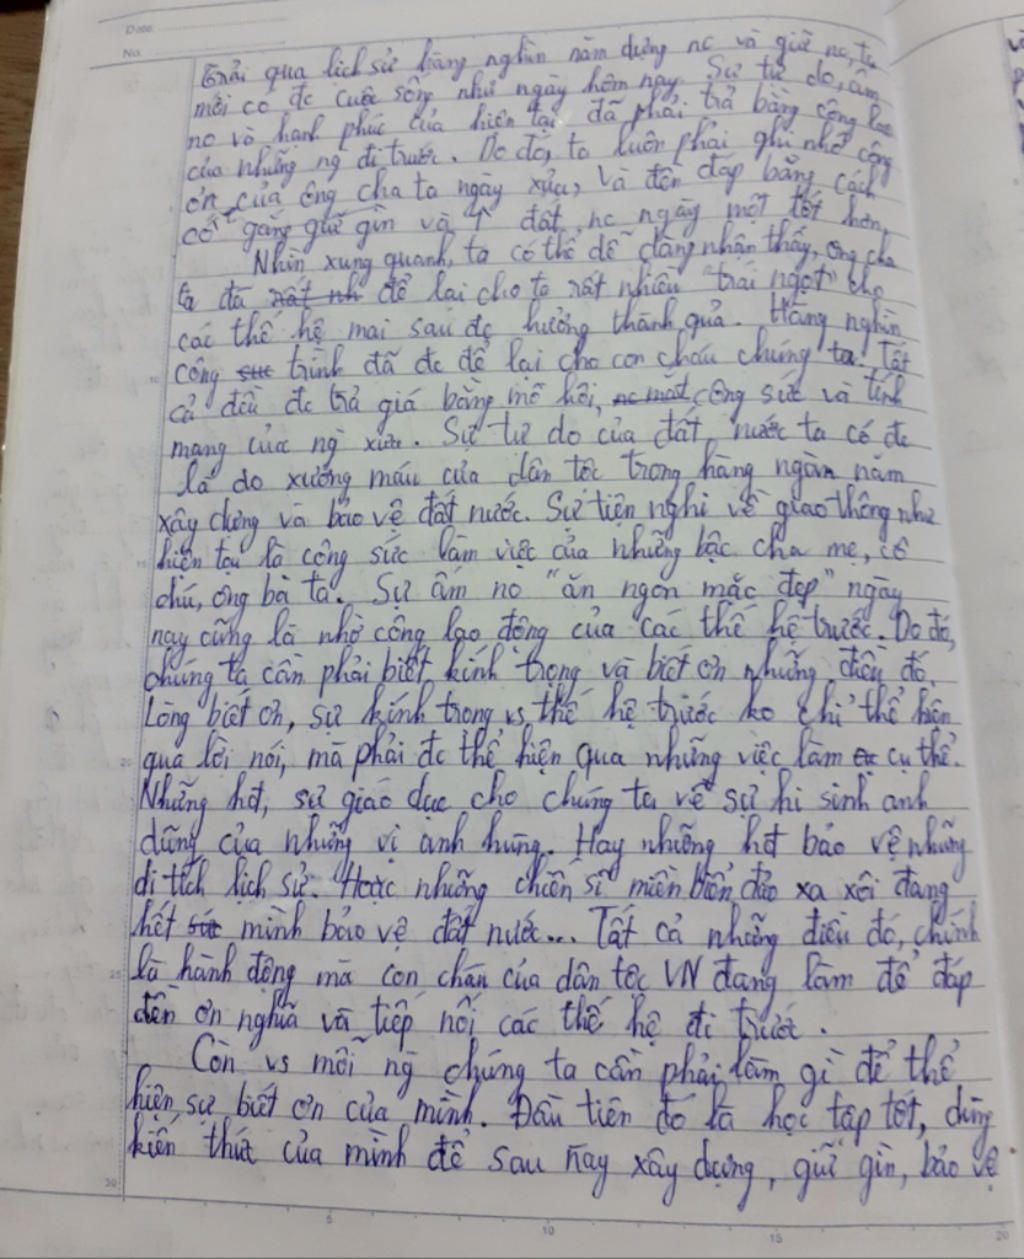 Date
No.
Trải qua lịch sử hàng nghìn năm dựng nc và giữ nc, ta
mới có đc cuộc sống như ngày hôm nay. Sự tự do, ấm
no và hạnh phúc của hiện tại đã phải trả bằng công lao
của những ng đi trước. Do đó, ta luôn phải ghi nhớ công
ơn của ông cha ta ngày xưa, và đền đáp bằng cách
cố gắng giữ gìn và ↑ đất nc ngày một tốt hơn.
Nhìn xung quanh, ta có thể dễ dàng nhận thấy, ông cha
ta đã rất nh để lại cho ta rất nhiều "trái ngọt" cho
các thế hệ mai sau đc hưởng thành quả. Hàng nghìn
công trình đã đc để lại cho con cháu chúng ta. Tất
cả đều đc trả giá bằng mồ hôi, nc mắt công sức và tính
mạng của ng xưa. Sự tự do của đất nước ta có đc
là do xương máu của dân tộc trong hàng ngàn năm
xây dựng và bảo vệ đất nước. Sự tiện nghi về giao thông như
hiện tại là công sức làm việc của những bậc cha mẹ, cô
chú, ông bà ta. Sự ấm no "ăn ngon mặc đẹp" ngày
nay cũng là nhờ công lao động của các thế hệ trước. Do đó,
chúng ta cần phải biết kính trọng và biết ơn những điều đó.
Lòng biết ơn, sự kính trọng vs thế hệ trước ko chỉ thể hiện
qua lời nói, mà phải đc thể hiện qua những việc làm cụ thể.
Những hđ, sự giáo dục cho chúng ta về sự hi sinh anh
dũng của những vị anh hùng. Hay những hđ bảo vệ những
di tích lịch sử. Hoặc những chiến sĩ miền biển đảo xa xôi đang
hết sức mình bảo vệ đất nước... Tất cả những điều đó, chính
là hành động mà con cháu của dân tộc VN đang làm để đáp
đền ơn nghĩa và tiếp nối các thế hệ đi trước.
Còn vs mỗi ng chúng ta cần phải làm gì để thể
hiện sự biết ơn của mình. Đầu tiên đó là học tập tốt, dùng
kiến thức của mình để sau này xây dựng, giữ gìn, bảo vệ
5 10 15 20